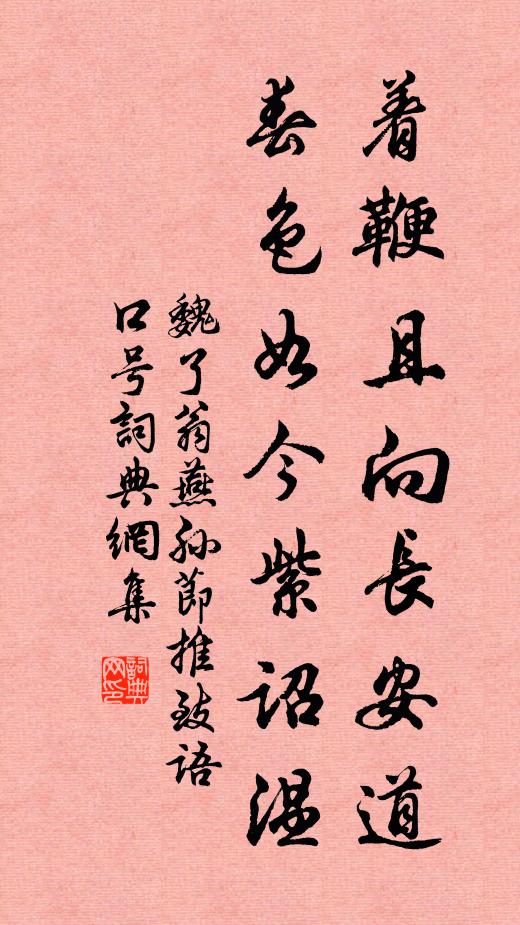 着鞭且向長安道
春色如今紫詔湿
魏了翁燕孙節推致语
口号詞典網集
詞典网印